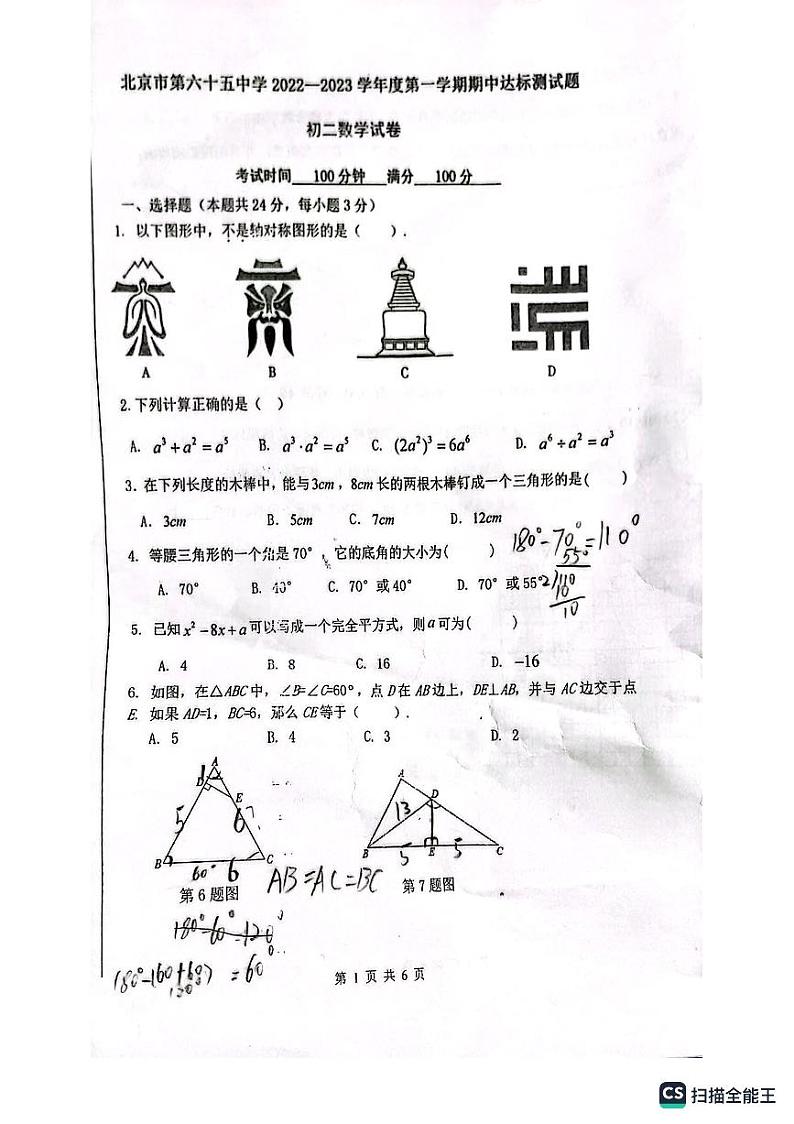 北京市第六十五中学2022—2023学年度第一学期期中达标测试题
初二数学试卷
考试时间 100分钟 满分 100分
一、选择题（本题共24分，每小题3分）
1. 以下图形中，不是轴对称图形的是（ ）.
A B C D
2.下列计算正确的是（ ）
A. a³+a²=a⁵ B. a³·a²=a⁵ C. (2a²)³=6a⁶ D. a⁶÷a²=a³
3.在下列长度的木棒中，能与3cm，8cm长的两根木棒钉成一个三角形的是( )
A. 3cm B. 5cm C. 7cm D. 12cm
180°-70°=110°
4. 等腰三角形的一个角是70°，它的底角的大小为( )
55°
2)110
10
10
A. 70° B. 40° C. 70°或40° D. 70°或55°
5. 已知x²-8x+a可以写成一个完全平方式，则a可为( )
A. 4 B. 8 C. 16 D. -16
6. 如图，在△ABC中，∠B=∠C=60°，点D在AB边上，DE⊥AB，并与AC边交于点
E. 如果AD=1，BC=6，那么CE等于( ).
A. 5 B. 4 C. 3 D. 2
A
1
D
E
5
6
B
60° 6
C
第6题图
A
D
13
B
5
E
5
C
第7题图
AB=AC=BC
180°-60°=120°
180°-(60+60) = 60°
第 1 页 共 6 页
CS 扫描全能王